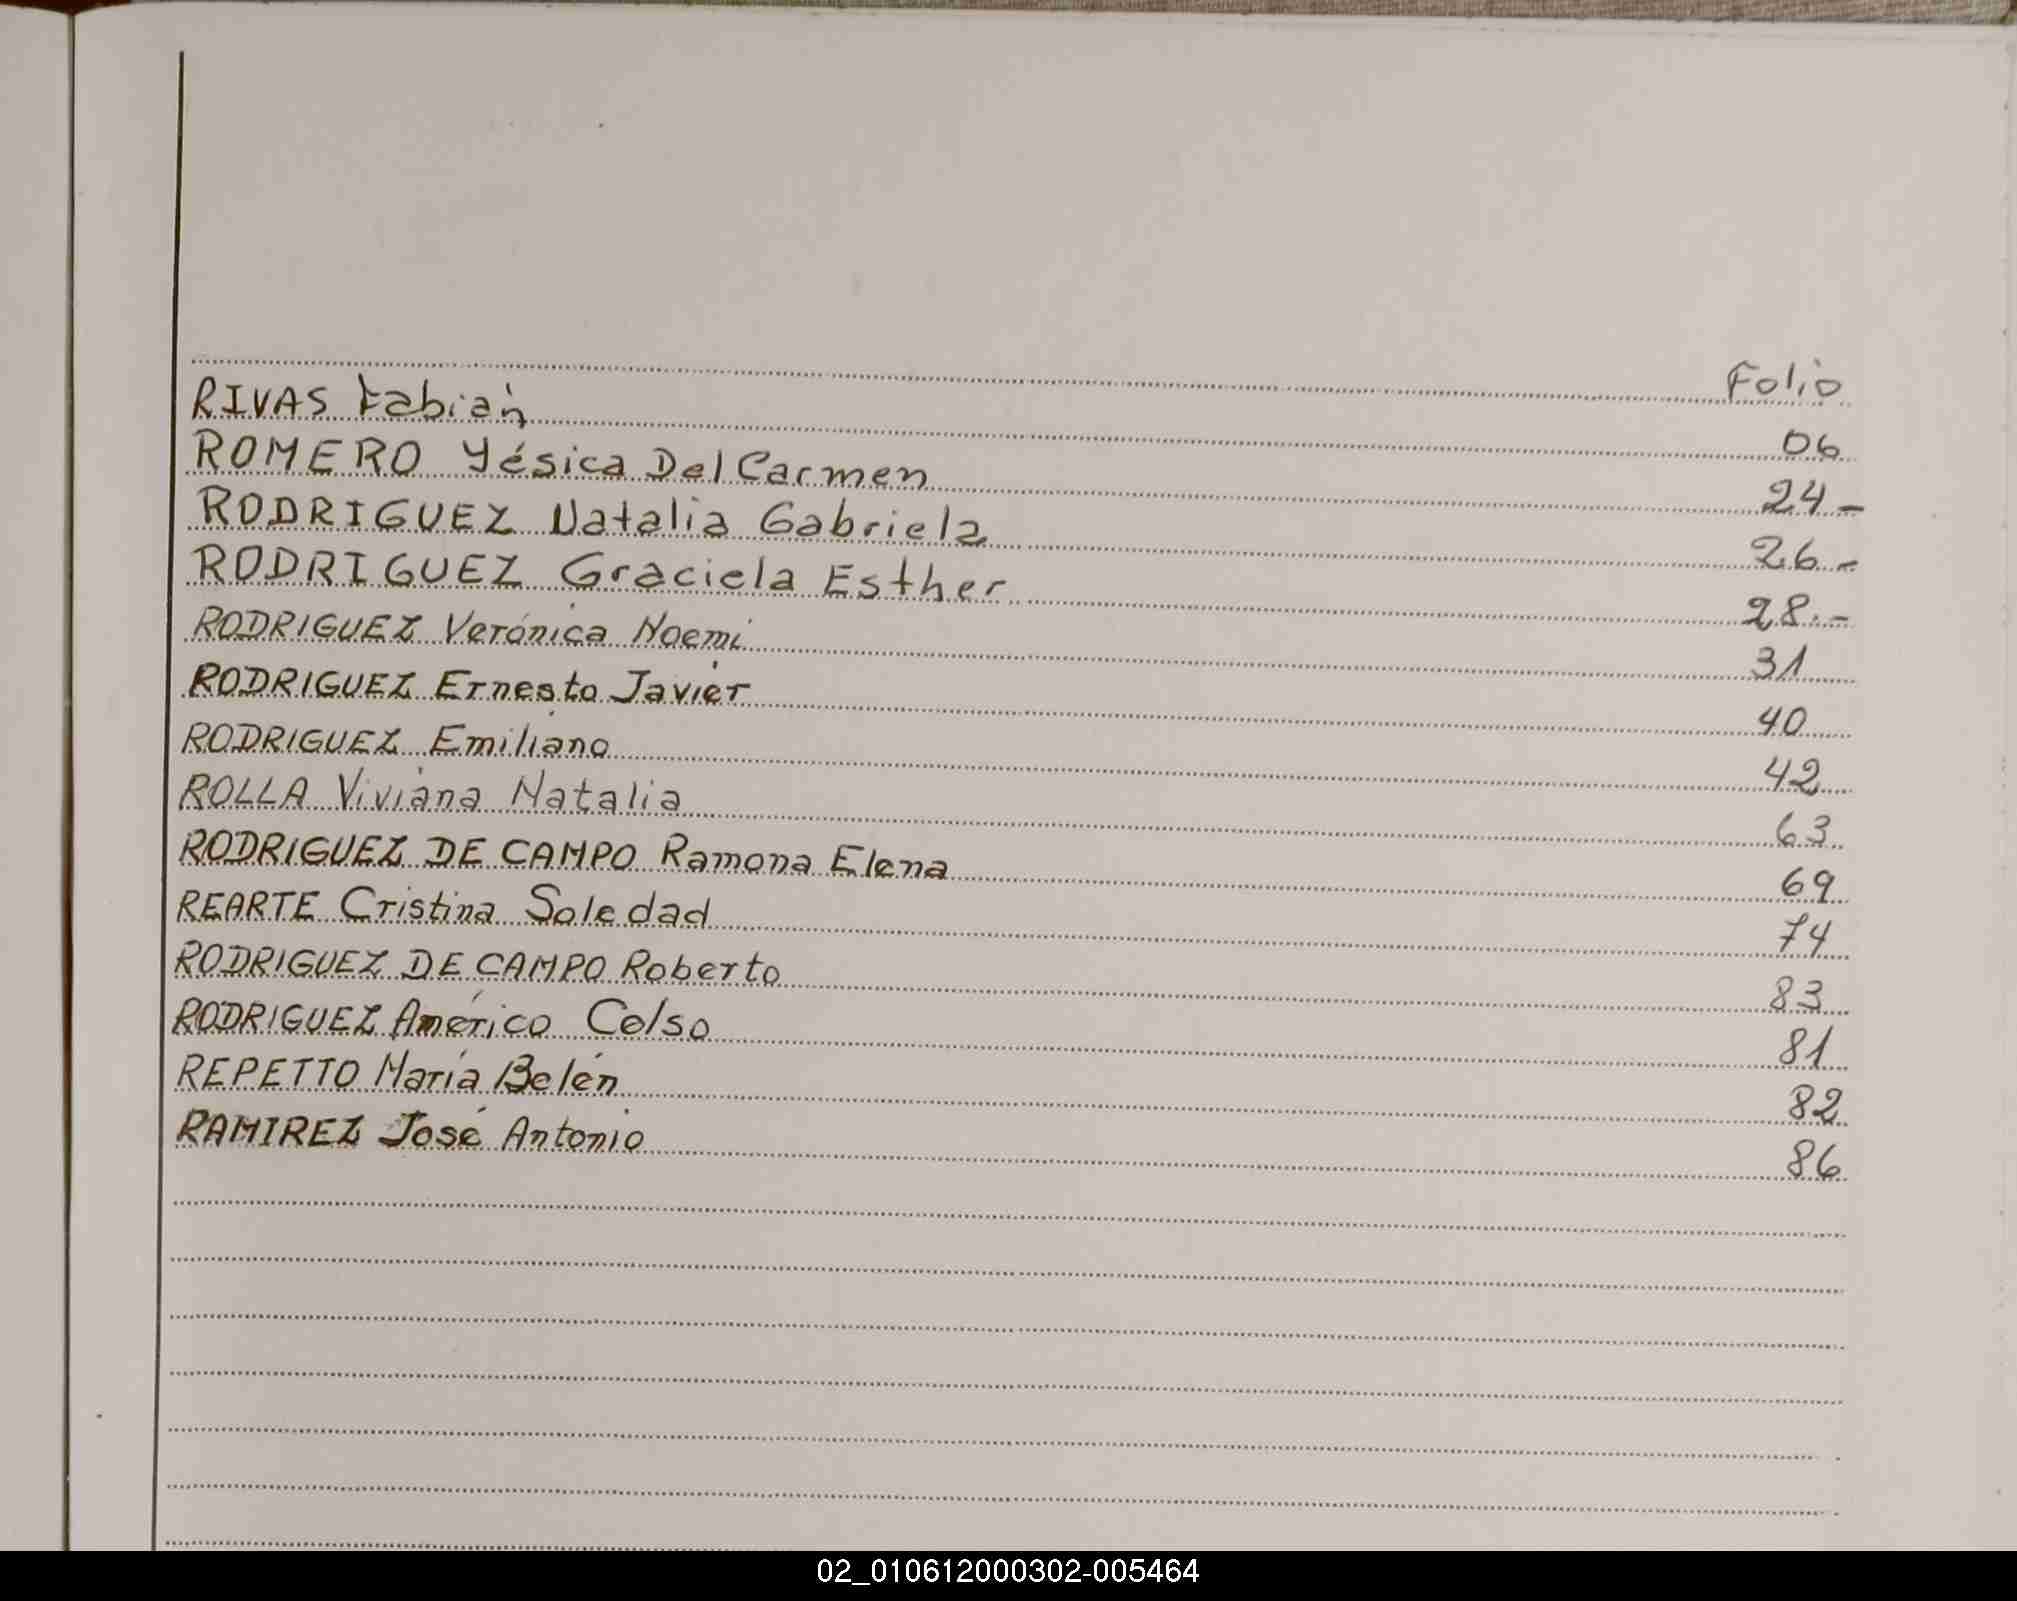 Folio
RIVAS Fabián 06
ROMERO Yésica Del Carmen 24-
RODRIGUEZ Natalia Gabriela 26-
RODRIGUEZ Graciela Esther 28.-
RODRIGUEZ Verónica Noemi 31
RODRIGUEZ Ernesto Javier 40
RODRIGUEZ Emiliano 42
ROLLA Viviana Natalia 63
RODRIGUEZ DE CAMPO Ramona Elena 69
REARTE Cristina Soledad 74
RODRIGUEZ DE CAMPO Roberto 83
RODRIGUEZ Américo Celso 81
REPETTO María Belén 82
RAMIREZ José Antonio 86
02_010612000302-005464